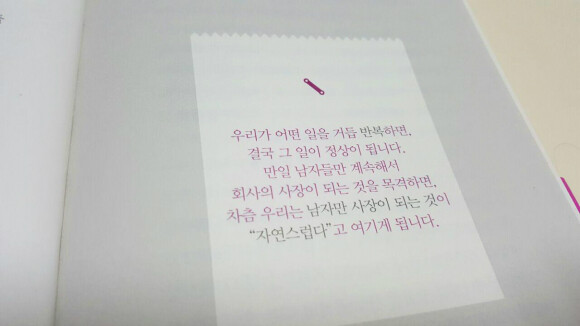 우리가 어떤 일을 거듭 반복하면,
결국 그 일이 정상이 됩니다.
만일 남자들만 계속해서
회사의 사장이 되는 것을 목격하면,
차츰 우리는 남자만 사장이 되는 것이
“자연스럽다”고 여기게 됩니다.